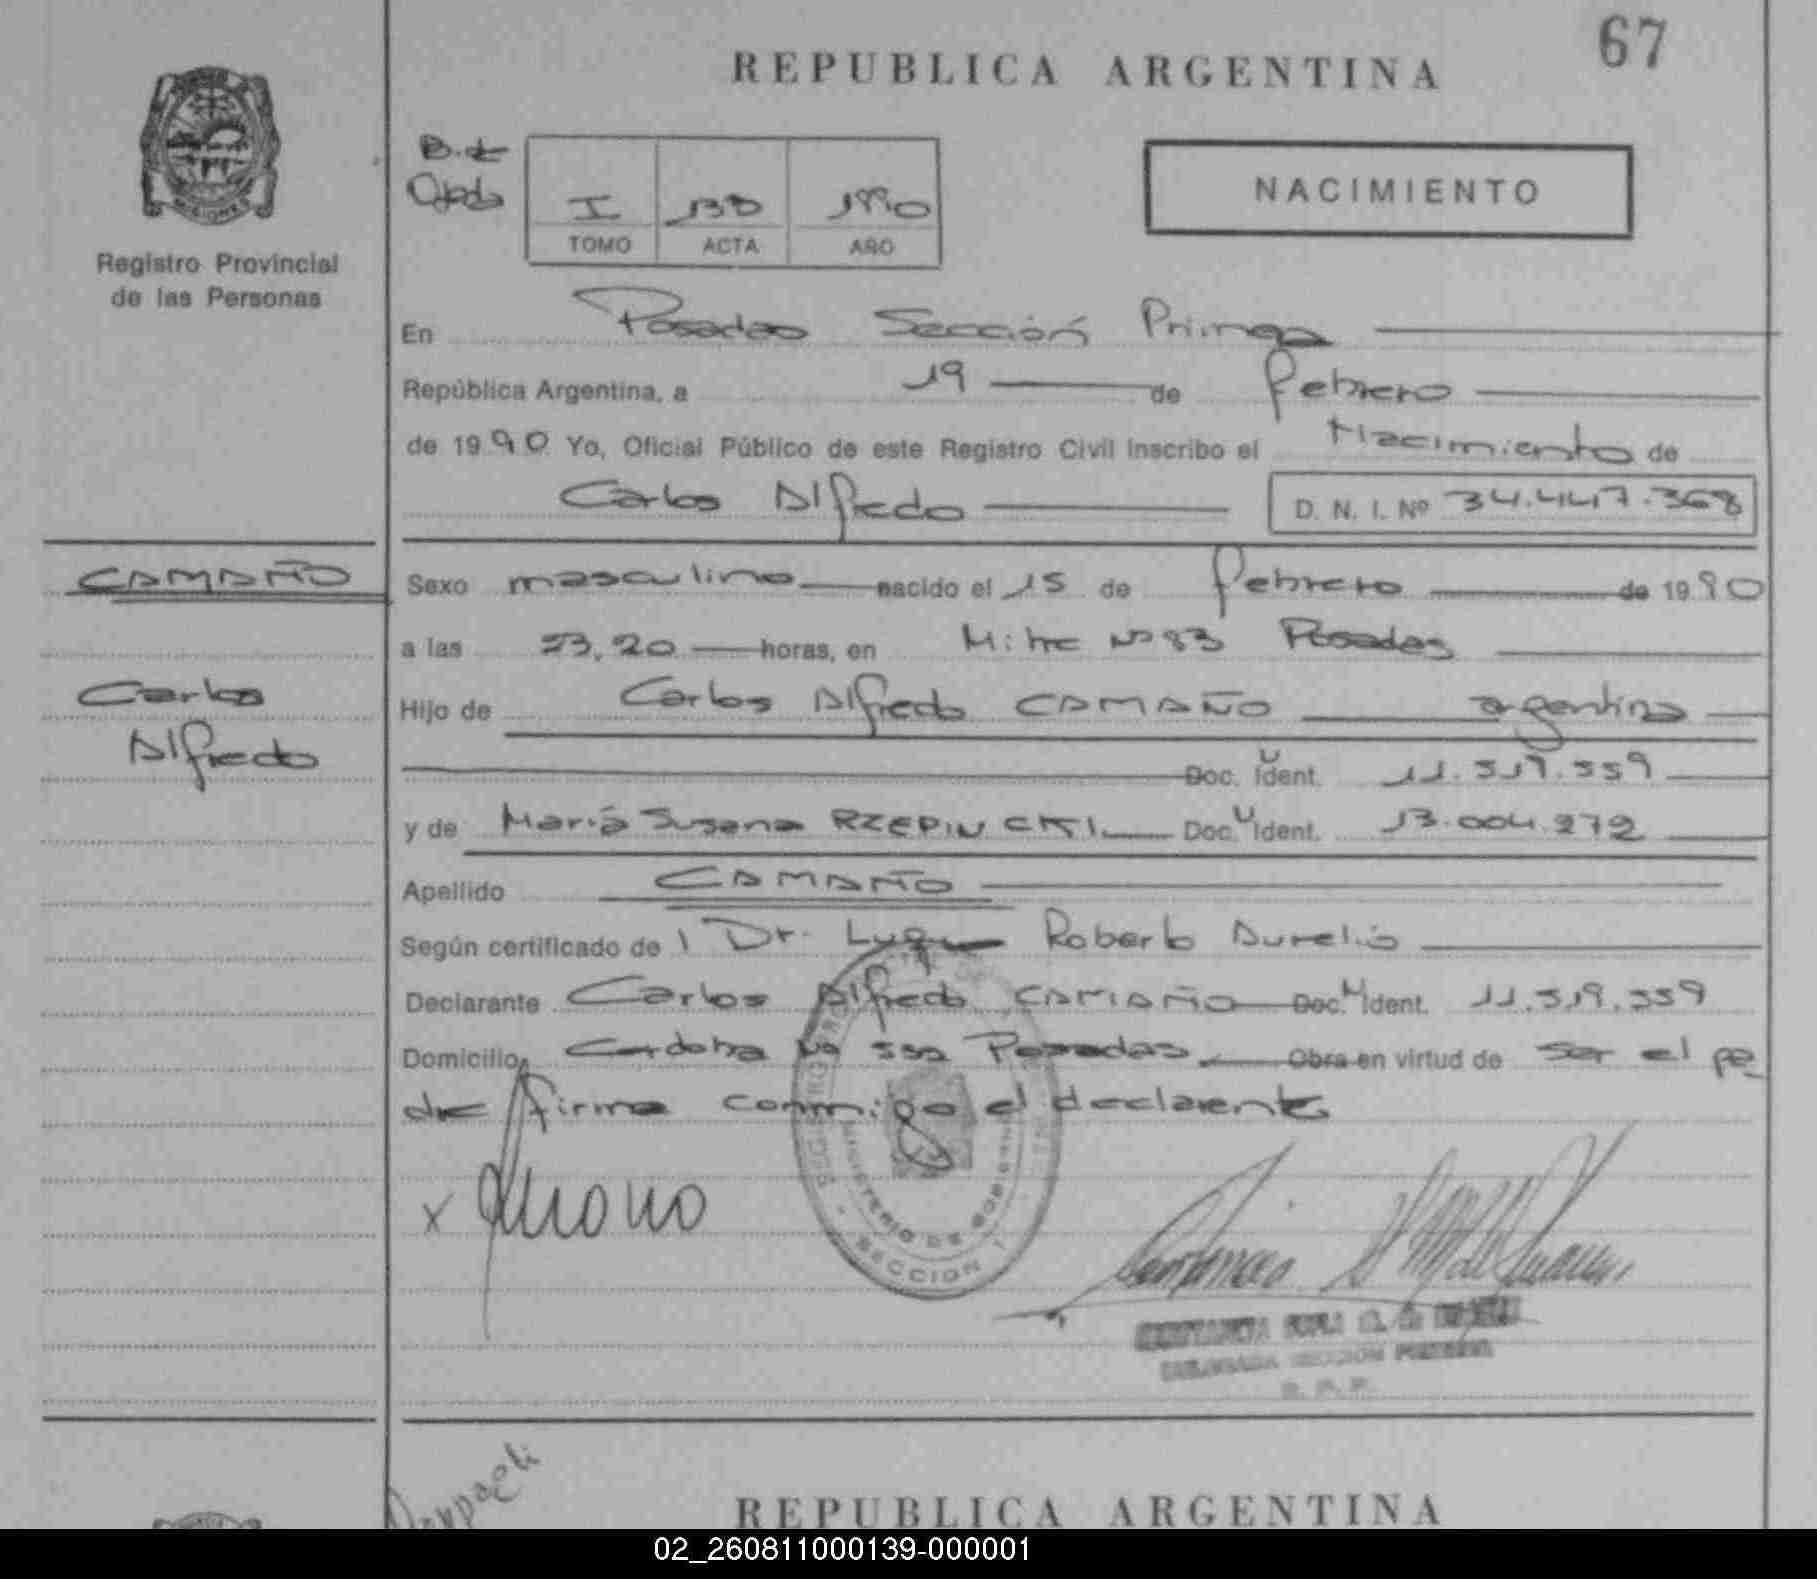 67
REPUBLICA ARGENTINA
MISIONES
Registro Provincial
de las Personas
B. de
Ojeda
I 138 1990
TOMO ACTA AÑO
NACIMIENTO
En Posadas Sección Primera
República Argentina, a 19 de febrero
de 1990 Yo, Oficial Público de este Registro Civil inscribo el Nacimiento de
Carlos Alfredo D. N. I. Nº 34.447.368
CAMAÑO
Sexo masculino nacido el 15 de febrero de 1990
a las 23,20 horas, en Mitre Nº 83 Posadas
Carlos
Alfredo
Hijo de Carlos Alfredo CAMAÑO argentino
Doc. Ident. 11.519.559
y de María Susana RZEPINCKI Doc. Ident. 13.004.272
Apellido CAMAÑO
Según certificado de l Dr. Luque Roberto Aurelio
Declarante Carlos Alfredo CAMAÑO Doc. Ident. 11.519.559
Domicilio Cordoba Posadas Obra en virtud de ser el pa
dre firma conmigo el declarante
MINISTERIO DE GOBIERNO
SECCION 1
x
SECCION PRIMERA
REPUBLICA ARGENTINA
02_260811000139-000001